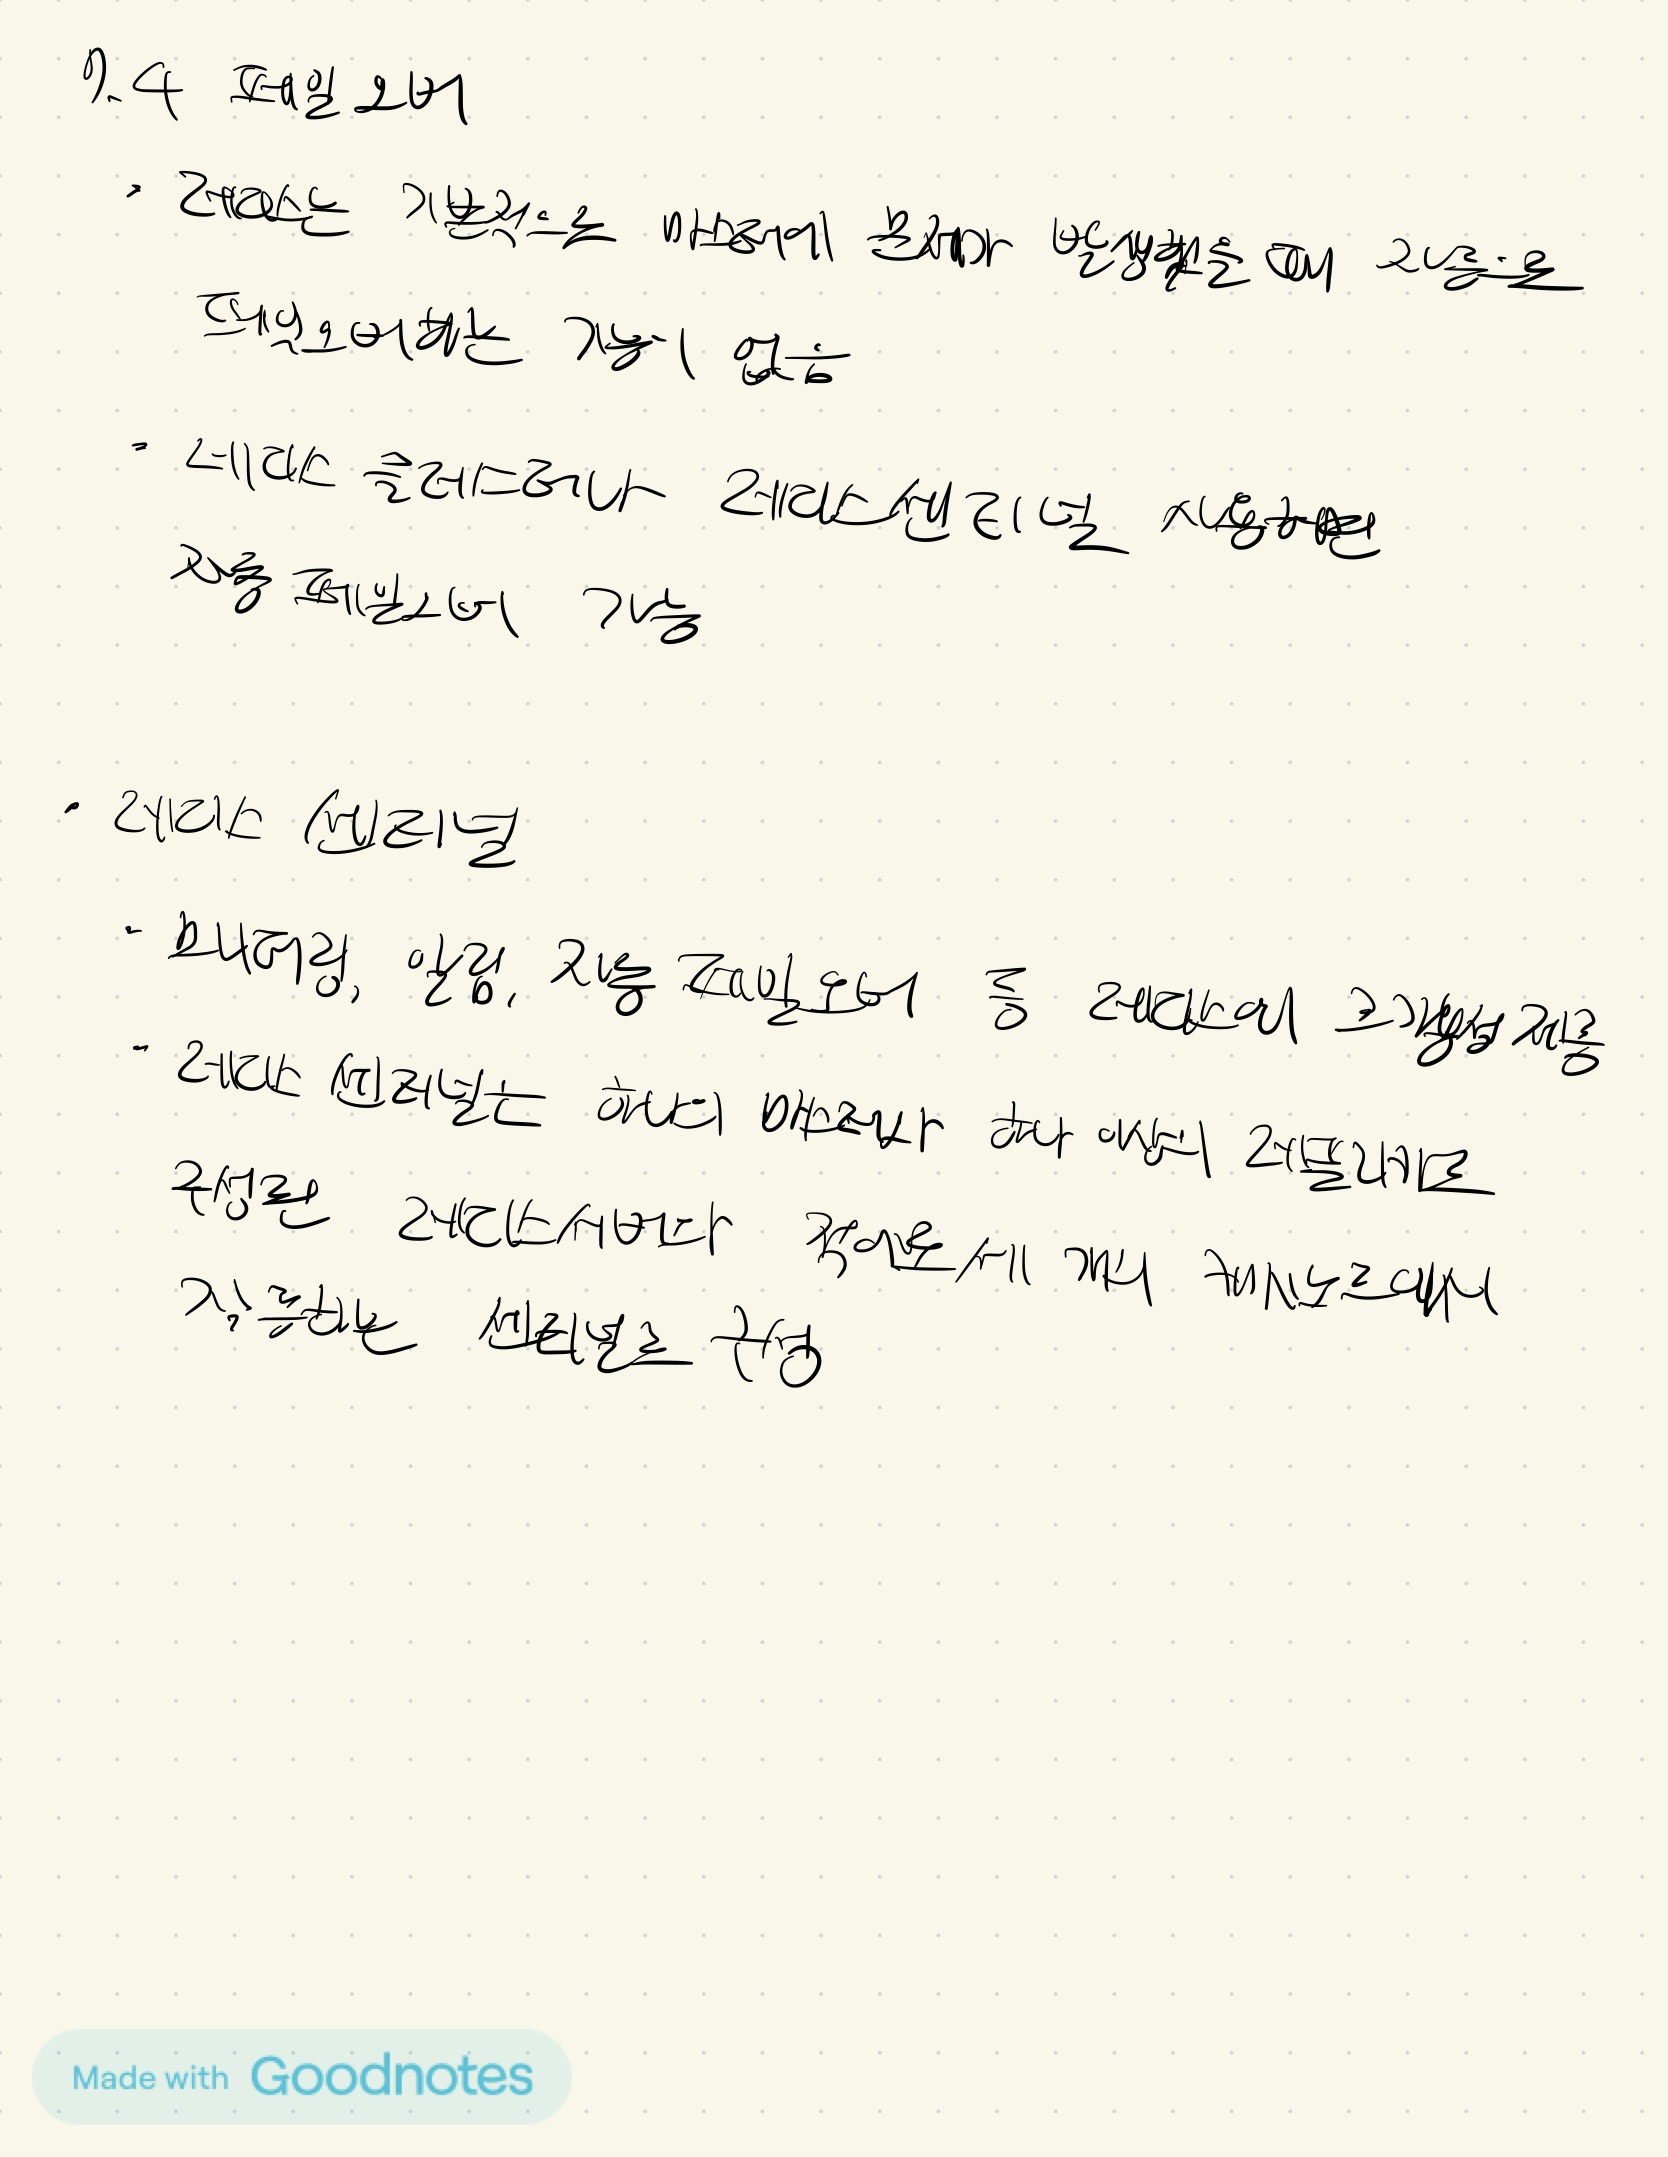 7.4 페일오버
· 레디스는 기본적으로 마스터에 문제가 발생했을 때 자동으로
페일오버하는 기능이 없음
- 레디스 클러스터나 레디스 센티널 사용하면
자동 페일오버 가능
· 레디스 센티널
- 모니터링, 알림, 자동 페일오버 등 레디스에 고가용성 제공
- 레디스 센티널은 하나의 마스터와 하나 이상의 레플리카로
구성된 레디스 서버다 적어도 세 개의 노드에서
작동하는 센티널로 구성
Made with Goodnotes